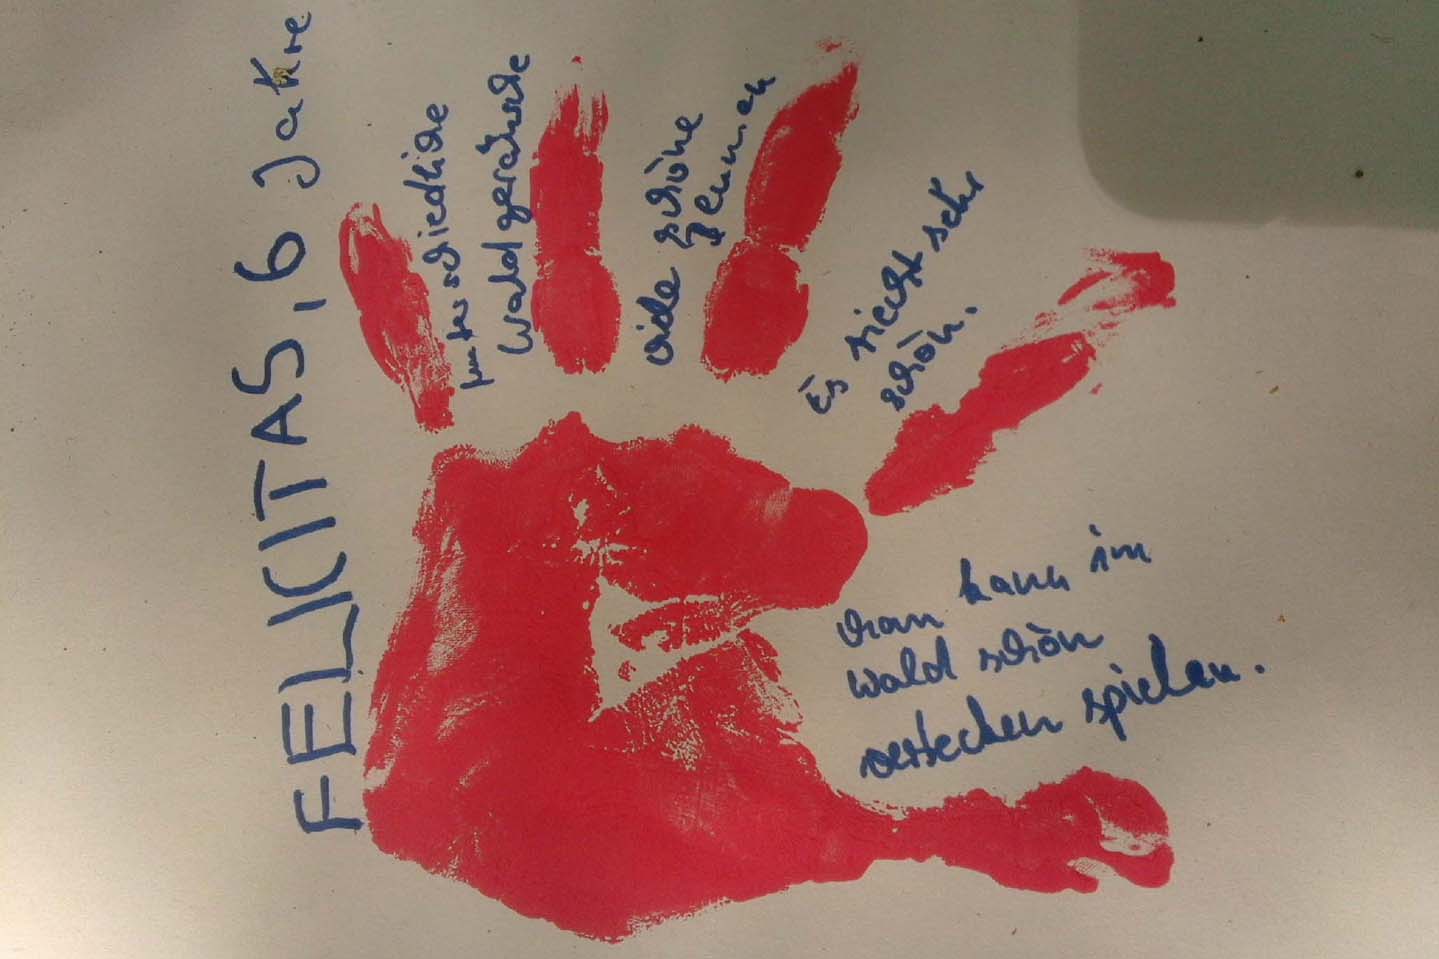 FELICITAS, 6 Jahre
unterschiedliche
Waldgeräusche
viele schöne
Blumen
Es riecht sehr
schön.
Man kann im
Wald schön
verstecken spielen.